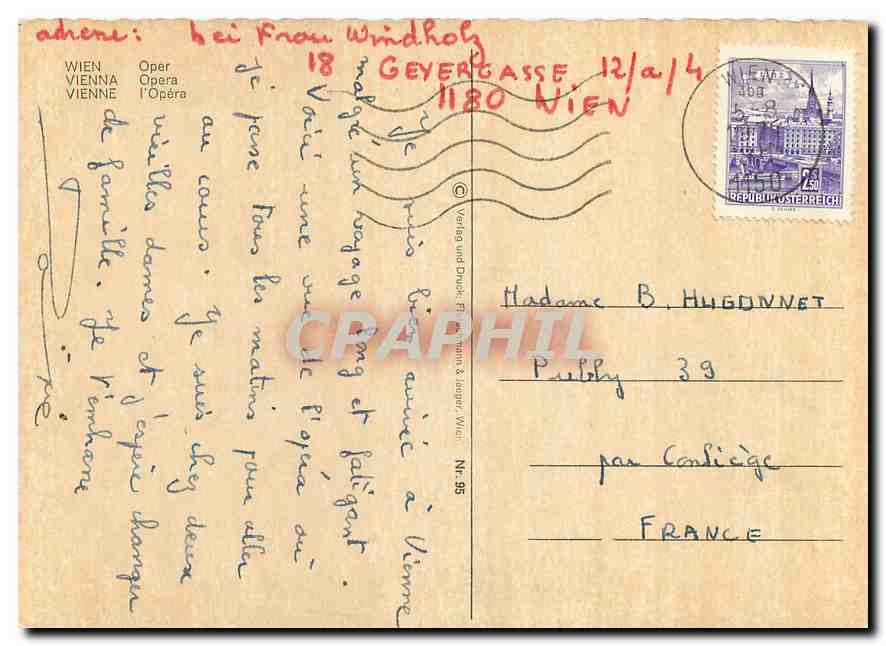 adresse: bei Frau Windholz
18 GEYERGASSE 12/a/4
1180 WIEN
WIEN Oper
VIENNA Opera
VIENNE l'Opéra
Je suis bien arrivée à Vienne
malgré un voyage long et fatigant.
Voici une vue de l'opéra où
je passe tous les matins pour aller
au cours. Je suis chez deux
vieilles dames et j'espère changer
de famille. Je t'embrasse
© Verlag und Druck: & Jaeger, Wien Nr. 95
WIEN
1150
2.50
REPUBLIK ÖSTERREICH
Madame B. HUGONNET
Publy 39
par Conliège
FRANCE
CRAPHIL